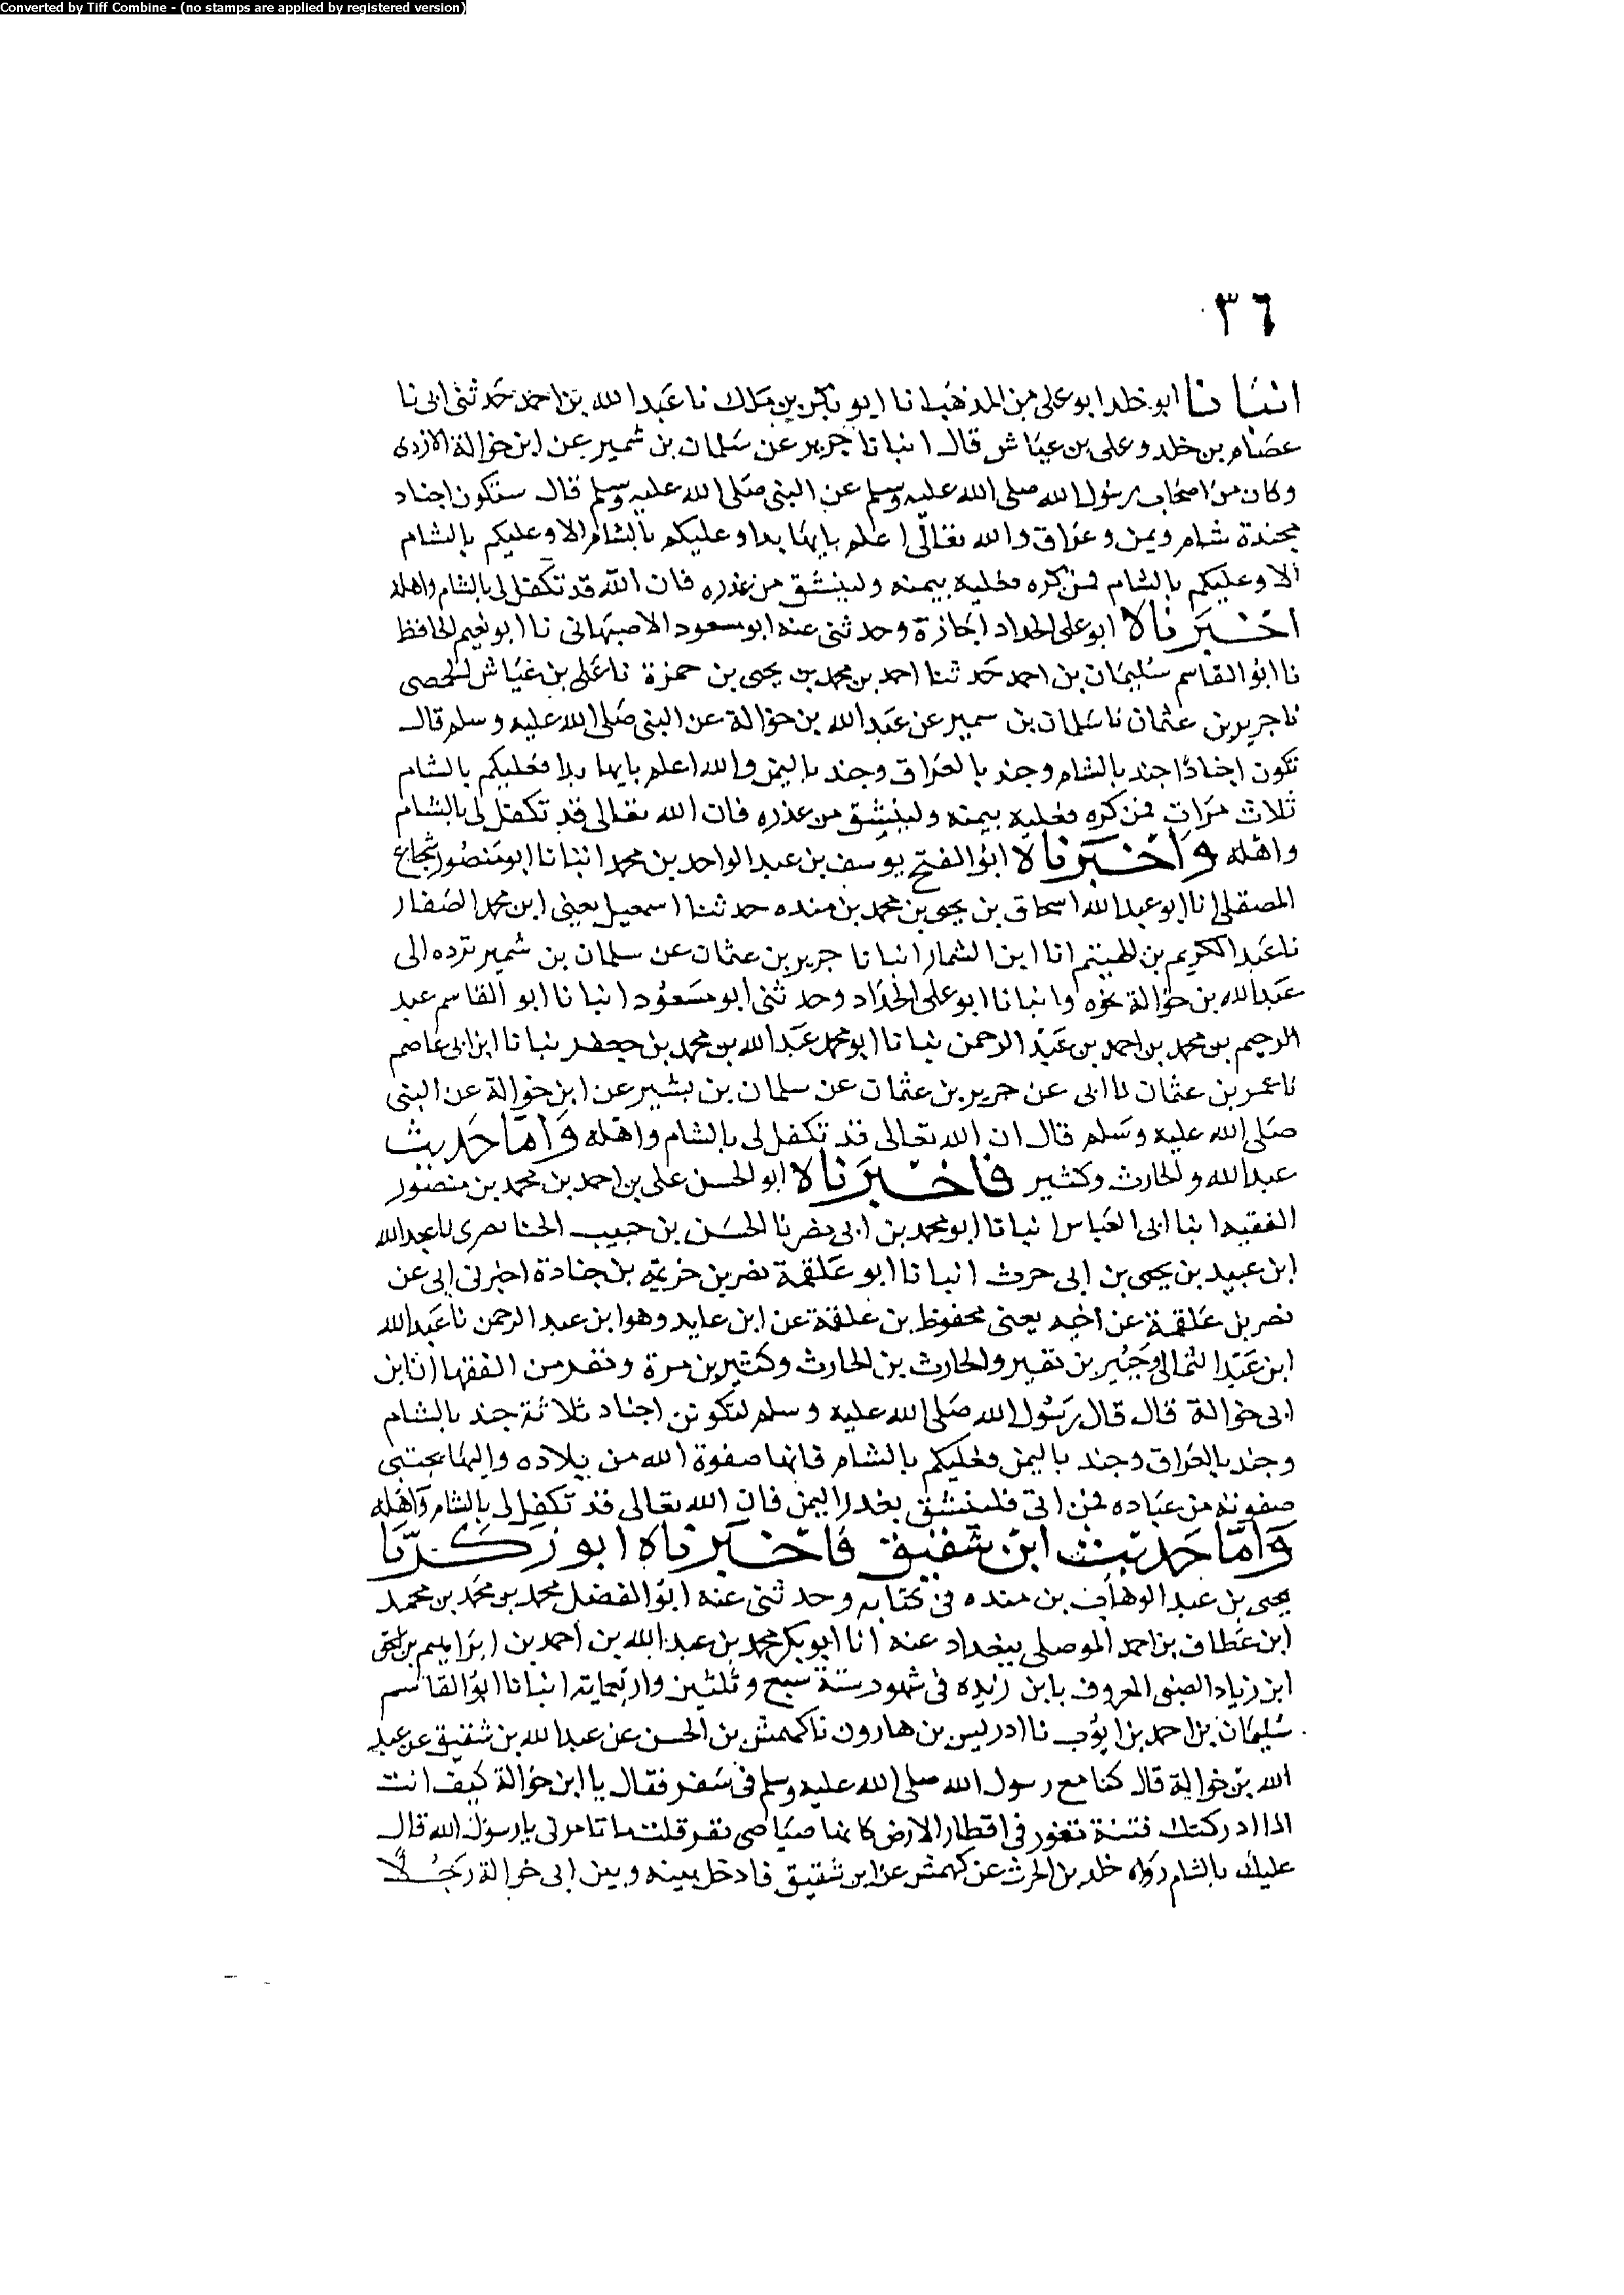 Converted by Tiff Combine - (no stamps are applied by registered version)
٣٦
انبانا ابو خلد ابو على بن المذهب انا ابو بكر بن ملك نا عبد الله بن احمد حدثنى ابى نا
عصام بن خلد وعلى بن عياش قال انبانا جرير عن سلمان بن شمير عن ابن حوالة الازدى
وكان من اصحاب رسول الله صلى الله عليه وسلم عن النبى صلى الله عليه وسلم قال ستكون اجناد
مجندة شام ويمن وعراق والله تعالى اعلم بايها بدا وعليكم بالشام الا وعليكم بالشام
الا وعليكم بالشام فمن كره فعليه بيمنه ولينشق من غدره فان الله قد تكفل لى بالشام واهله
اخبرناه ابو على الحداد اجازة وحدثنى عنه ابو مسعود الاصبهانى نا ابو نعيم الحافظ
نا ابو القاسم سليمان بن احمد حدثنا احمد بن محمد بن يحيى بن حمزة نا على بن عياش الحمصى
نا جرير بن عثمان نا سلمان بن سمير عن عبد الله بن حوالة عن النبى صلى الله عليه وسلم قال
تكون اجنادا جند بالشام وجند بالعراق وجند باليمن والله اعلم بايها بدا فعليكم بالشام
ثلاث مرات فمن كره فعليه بيمنه ولينشق من عذره فان الله تعالى قد تكفل لى بالشام
واهله واخبرناه ابو الفتح يوسف بن عبد الواحد بن محمد انبانا ابو منصور شجاع
المصقلى انا ابو عبد الله اسحاق بن يحيى بن محمد بن منده حدثنا اسمعيل يعنى ابن محمد الصفار
نا عبد الكريم بن الهيثم انا ابن الشمار انبانا جرير بن عثمان عن سلمان بن شمير ترده الى
عبد الله بن حوالة نحوه وانبانا ابو على الحداد وحدثنى ابو مسعود انبانا ابو القاسم عبد
الرحيم بن محمد بن احمد بن عبد الرحمن نبانا ابو محمد عبد الله بن محمد بن جعفر نبانا ابن ابى عاصم
نا عمر بن عثمان نا ابى عن جرير بن عثمان عن سلمان بن بشير عن ابن حوالة عن النبى
صلى الله عليه وسلم قال ان الله تعالى قد تكفل لى بالشام واهله واما حديث
عبد الله والحارث وكثير فاخبرناه ابو الحسن على بن احمد بن محمد بن منصور
الفقيه انبا ابى العباس انبانا ابو محمد بن ابى نصر نا الحسن بن حبيب الحنا نصرى نا عبد الله
ابن عبيد بن يحيى بن ابى حرث انبانا ابو علقمة نصر بن خزيمة بن جنادة اخبرنى ابى عن
نصر بن علقمة عن اخيه يعنى محفوظ بن علقمة عن ابن عايد وهو ابن عبد الرحمن نا عبد الله
ابن عبد الثمالى وجبير بن نفير والحارث بن الحارث وكثير بن مرة ونفر من الفقها ان ابن
ابى حوالة قال قال رسول الله صلى الله عليه وسلم لتكونن اجناد ثلاثة جند بالشام
وجند بالعراق وجند باليمن فعليكم بالشام فانها صفوة الله من بلاده واليها يجتبى
صفوته من عباده فمن ابى فلينشق بغدر اليمن فان الله تعالى قد تكفل لى بالشام واهله
واما حديث ابن شقيق فاخبرناه ابو زكريا
يحيى بن عبد الوهاب بن منده فى كتابه وحدثنى عنه ابو الفضل محمد بن محمد بن محمد
ابن عطاف بن احمد الموصلى ببغداد عنه انا ابو بكر محمد بن عبد الله بن احمد بن ابراهيم بن اسحق
ابن زياد الضبى المعروف بابن ريده فى شهور سنة سبع وثلثين واربعماية انبانا ابو القاسم
سليمان بن احمد بن ايوب نا ادريس بن هارون نا كهمش بن الحسن عن عبد الله بن شقيق عن عبد
الله بن حوالة قال كنا مع رسول الله صلى الله عليه وسلم فى سفر فقال يا ابن حوالة كيف انت
اذا ادركتك فتنة تغور فى اقطار الارض كانها صياصى نفر قلت ما تامرنى يا رسول الله قال
عليك بالشام رواه خلد بن الحرث عن كهمش عن ابن شقيق فادخل بينه وبين ابى حوالة رجلا